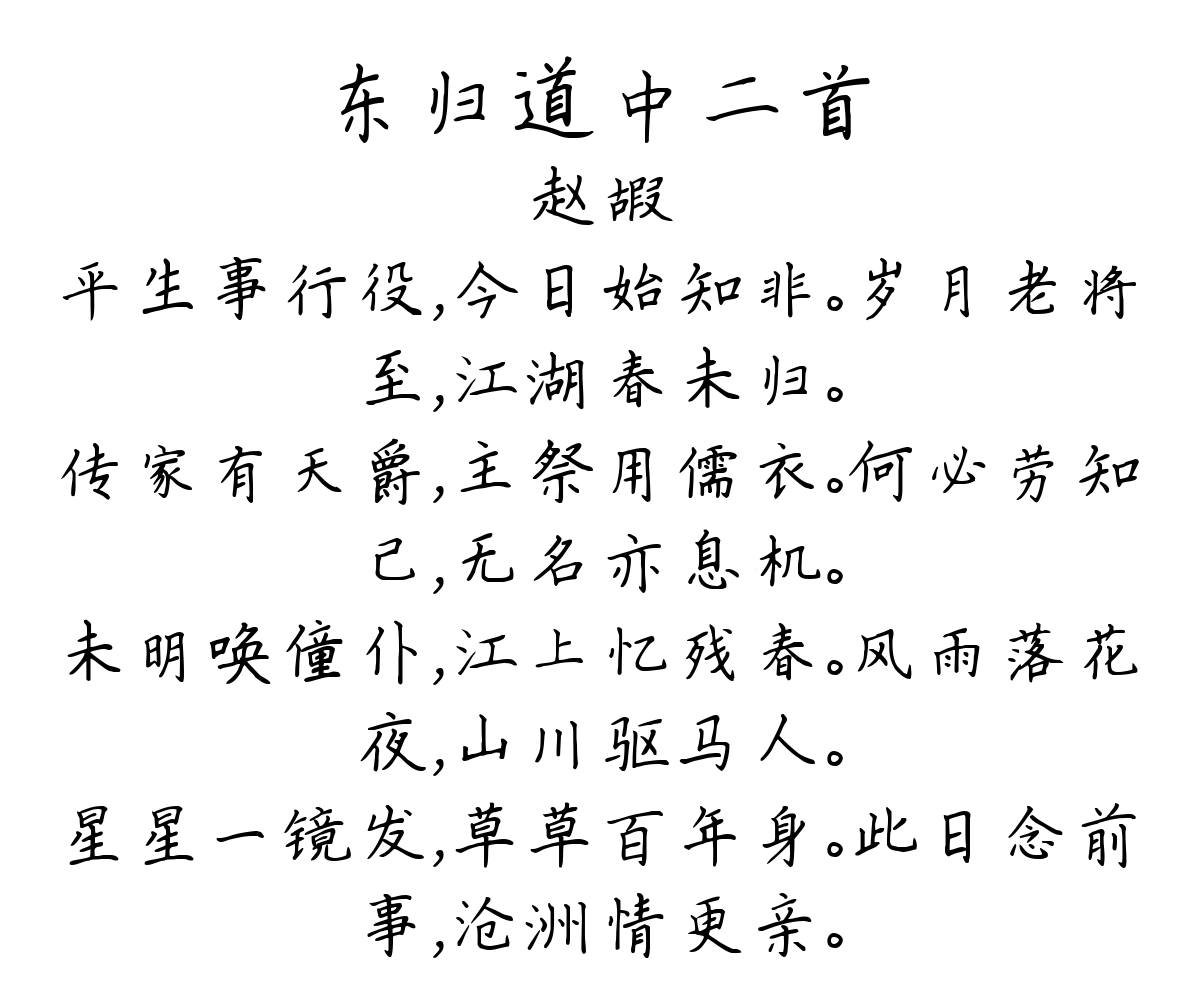 东归道中二首
赵嘏
平生事行役,今日始知非。岁月老将
至,江湖春未归。
传家有天爵,主祭用儒衣。何必劳知
己,无名亦息机。
未明唤僮仆,江上忆残春。风雨落花
夜,山川驱马人。
星星一镜发,草草百年身。此日念前
事,沧洲情更亲。